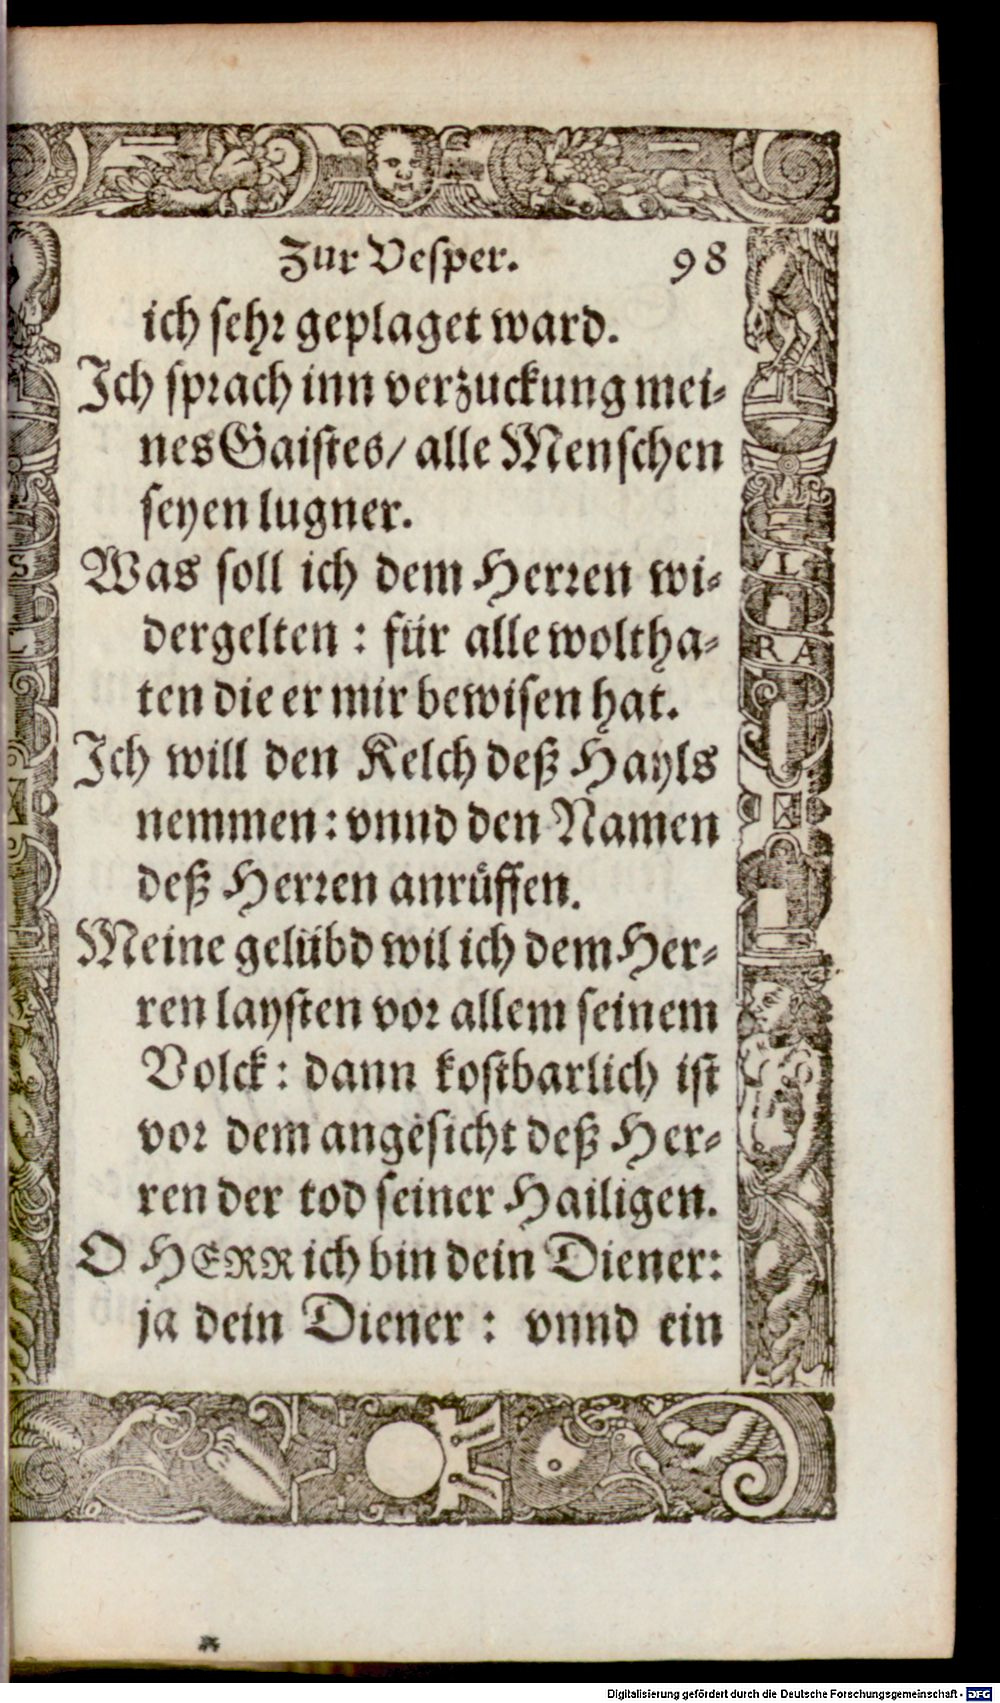 Zur Vesper. 98
ich sehr geplaget ward.
Ich sprach inn verzuckung mei-
nes Gaistes/ alle Menschen
seyen lugner.
Was soll ich dem Herren wi-
dergelten : für alle woltha-
ten die er mir bewisen hat.
Ich will den Kelch deß Hayls
nemmen: vnnd den Namen
deß Herren anrüffen.
Meine gelübd wil ich dem Her-
ren laysten vor allem seinem
Volck: dann kostbarlich ist
vor dem angesicht deß Her-
ren der tod seiner Hailigen.
O HERR ich bin dein Diener:
ja dein Diener : vnnd ein
S
L
I
R A
Digitalisierung gefördert durch die Deutsche Forschungsgemeinschaft - DFG